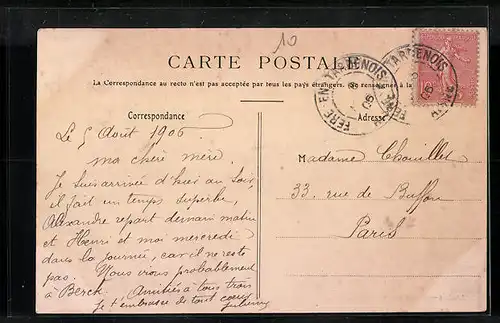 10
CARTE POSTALE
La Correspondance au recto n'est pas acceptée par tous les pays étrangers. Se renseigner à la
FERE EN TARDENOIS
AISNE
Correspondance
Adresse
Le 5 Août 1906
ma chère mère.
Je suis arrivée d'hier au soir,
il fait un temps superbe,
Alexandre repart demain matin
et Henri et moi mercredi
dans la journée, car il ne reste
pas. Nous irons probablement
à Berck. Amitiés à tous trois
je t'embrasse de tout coeur
Madame Chouillet
33 rue de Buffon
Paris